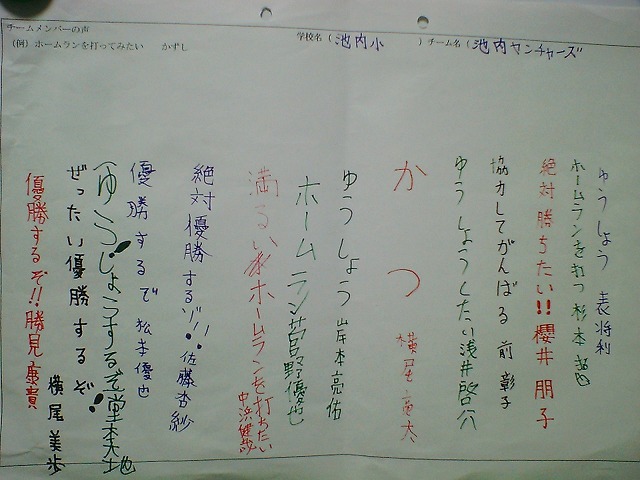 チームメンバーの声
(例) ホームランを打ってみたい かずし
学校名 ( 池内小 ) チーム名 ( 池内ヤンチャーズ
ゆうしょう 表将利
ホームランを打つ 杉本
絶対勝ちたい!! 櫻井朋子
協力してがんばる 前彰子
ゆうしょうしたい 浅井啓介
かつ 横尾竜太
ゆうしょう 岸本亮佑
ホームラン 菅野優也
満るい ホームランを打ちたい 中浜健哉
絶対優勝するゾ!! 佐藤杏紗
優勝するで 松本優也
ゆうじょうするぞ! 堂本大地
ぜったい優勝するぞ 横尾美歩
優勝するぞ!! 勝見康貴